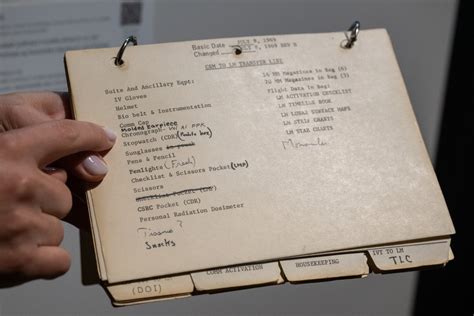 Basic Date JULY 8, 1969
Changed
CSM TO LM TRANSFER LIST
Suits And Ancillary Eqpt:
IV Gloves
Helmet
Bio belt & Instrumentation
Comm Cap
Molded Earpiece
Chronograph
Stopwatch (CDR)
Sunglasses
Pens & Pencil
Penlights (Fred)
Checklist & Scissors Pocket (LMP)
Scissors
Checklist Pocket (CDR)
CSRC Pocket (CDR)
Personal Radiation Dosimeter
Tissue ?
Snacks
16 MM Magazines in Bag (6)
70 MM Magazines in Bag (3)
Flight Data in Bag:
LM ACTIVATION CHECKLIST
LM TIMELINE BOOK
LM LUNAR SURFACE MAPS
LM STAR CHARTS
LM STAR CHARTS
(DOI)
COMM ACTIVATION
HOUSEKEEPING
IVT TO LM
TLC